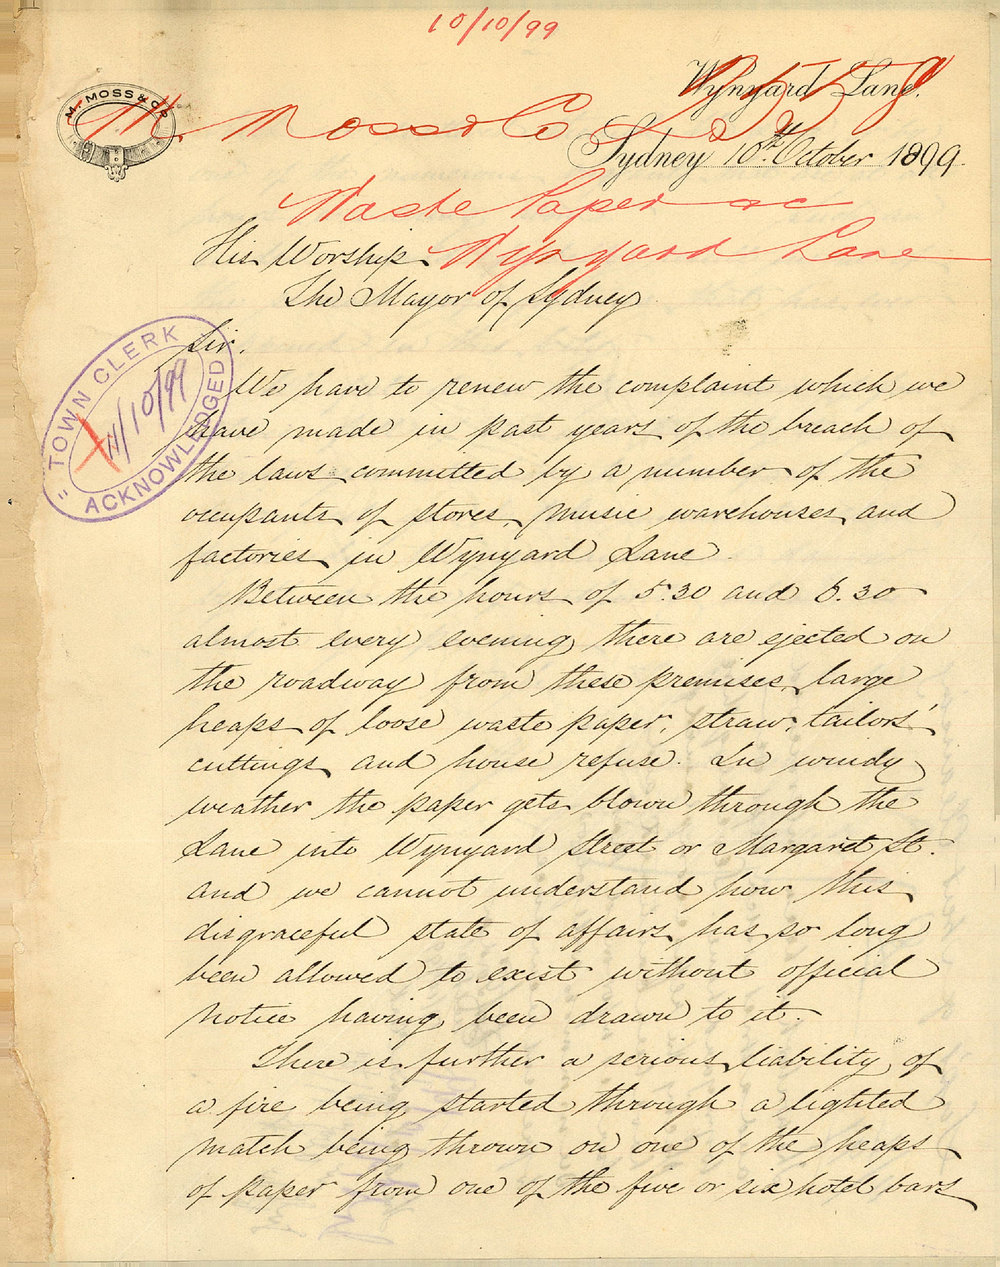 10/10/99
M. MOSS & CO
Wynyard Lane.
M. Moss & Co
Sydney 10th October 1899.
Waste Paper &c
His Worship Wynyard Lane
The Mayor of Sydney
Sir.
We have to renew the complaint which we
have made in past years of the breach of
the laws committed by a number of the
occupants of stores, music warehouses and
factories in Wynyard Lane
Between the hours of 5.30 and 6.30
almost every evening there are ejected on
the roadway from these premises large
heaps of loose waste paper, straw, tailors'
cuttings and house refuse. In windy
weather the paper gets blown through the
Lane into Wynyard Street or Margaret St.
and we cannot understand how this
disgraceful state of affairs has so long
been allowed to exist without official
notice having been drawn to it.
There is further a serious liability of
a fire being started through a lighted
match being thrown on one of the heaps
of paper from one of the five or six hotel bars
TOWN CLERK
11/10/99
ACKNOWLEDGED